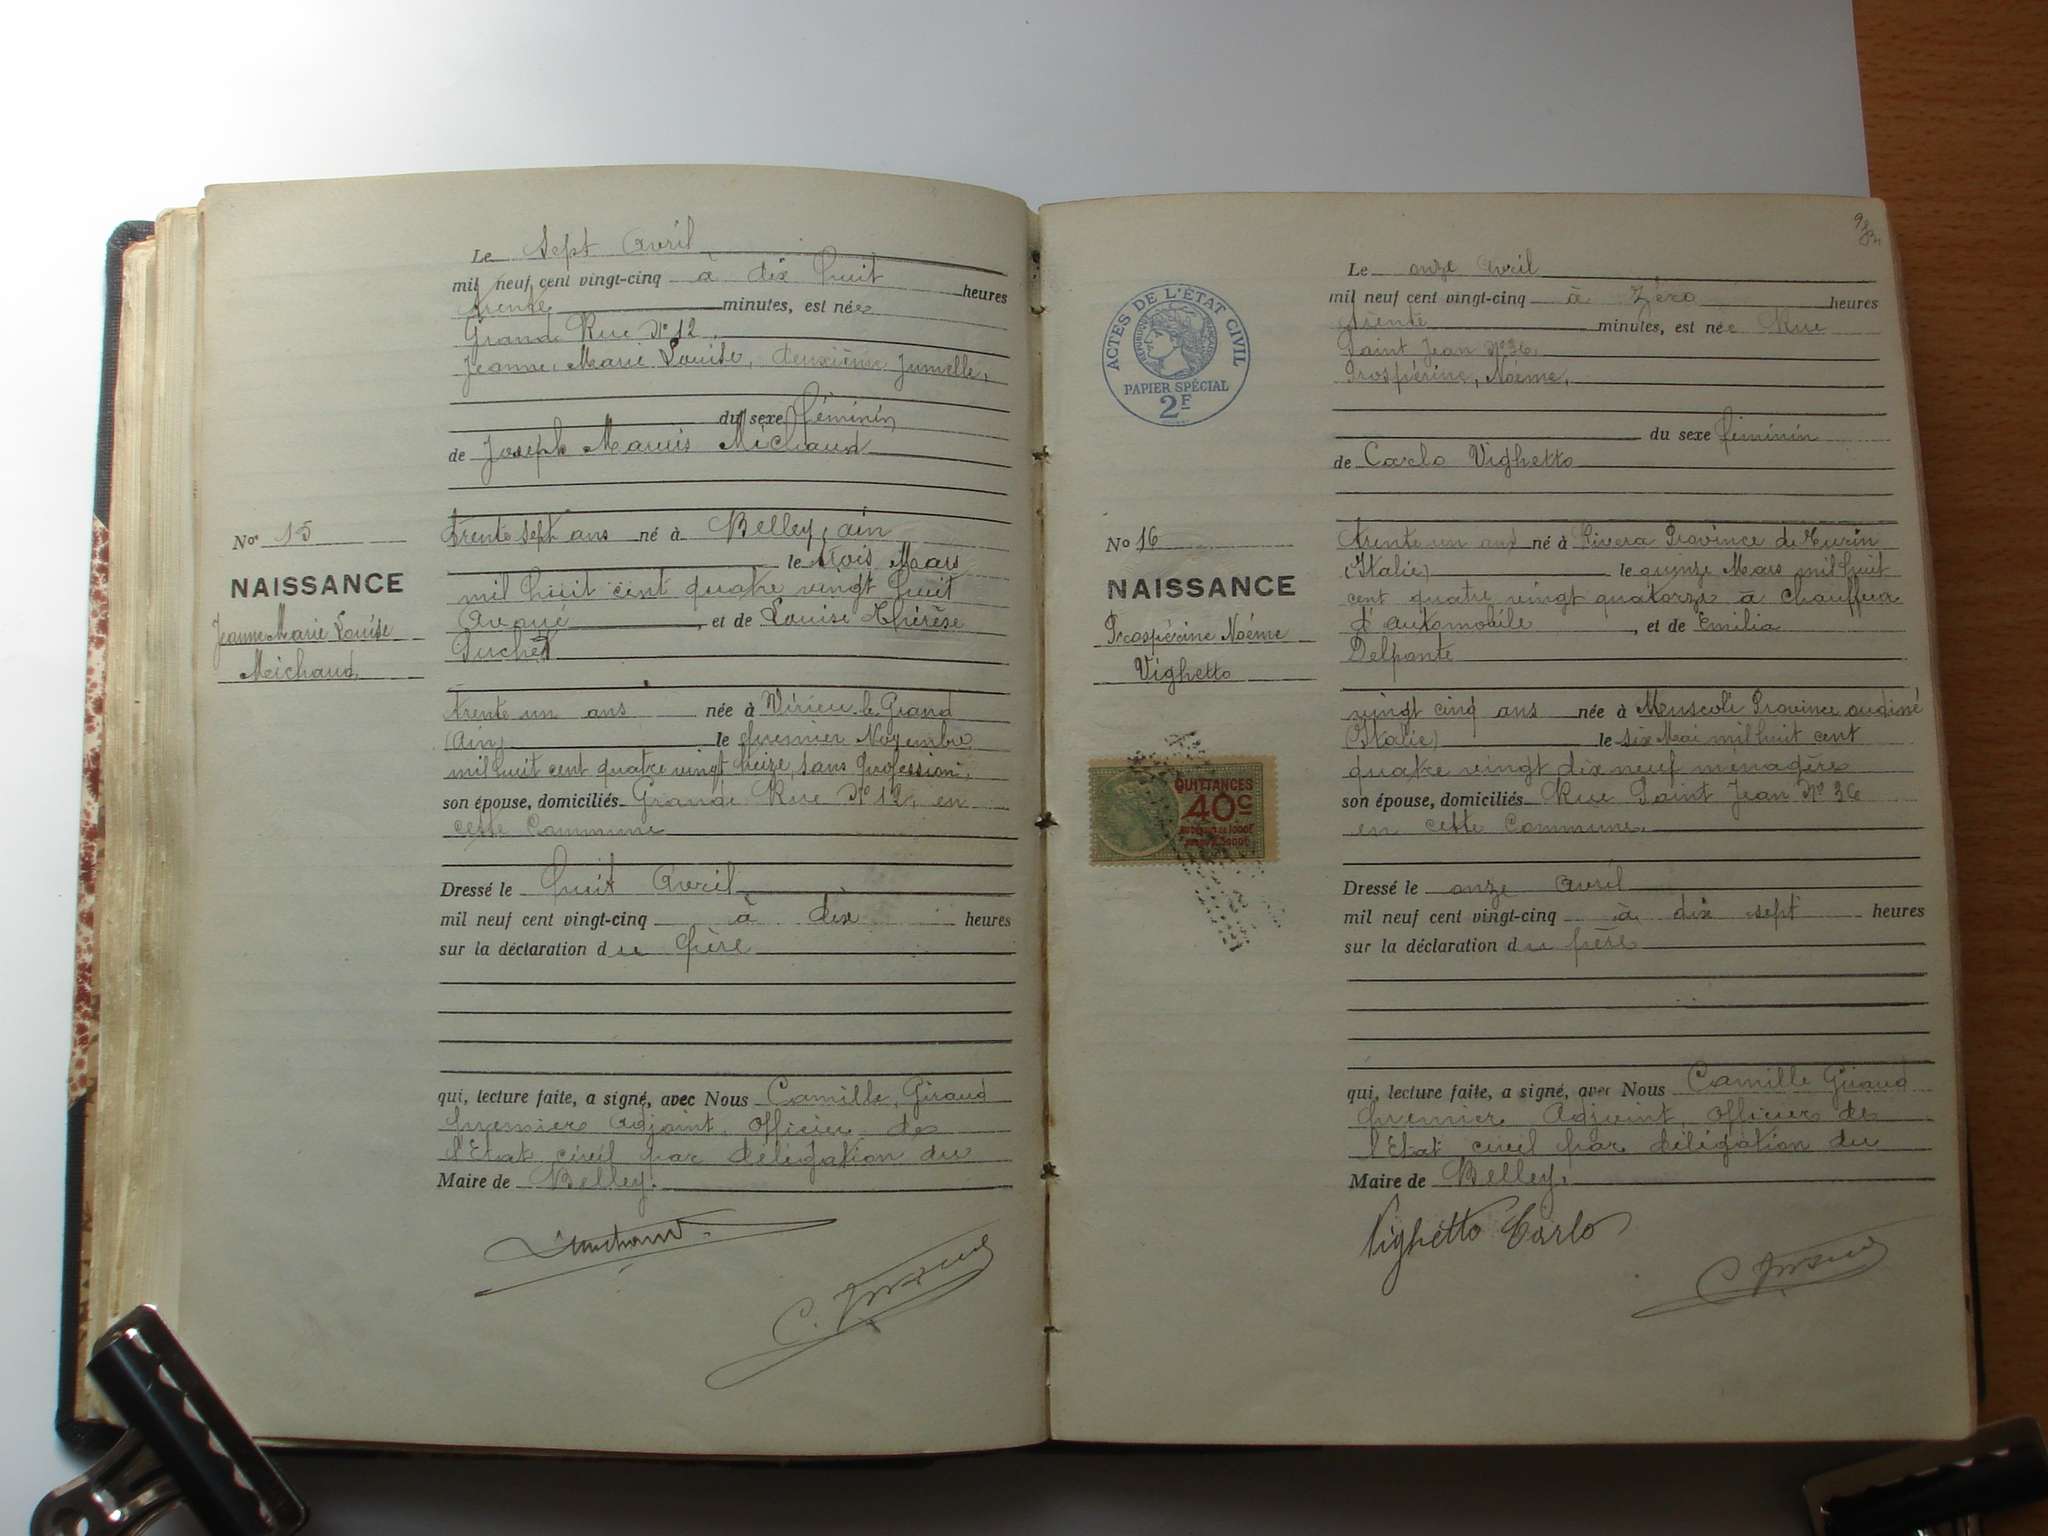 Le sept avril
mil neuf cent vingt-cinq à dix huit heures
trente minutes, est née
Grand Rue N° 12,
Jeanne, Marie Louise, deuxième Jumelle,
du sexe féminin
de Joseph Marius Michaud
N° 15
NAISSANCE
Jeanne Marie Louise
Michaud
trente sept ans né à Belley, ain
le trois Mars
mil huit cent quatre vingt huit
Avoué, et de Louise Thérèse
trente un ans née à Virieu-le-Grand
(Ain) le premier Novembre
mil huit cent quatre vingt treize, sans profession,
son épouse, domiciliés Grande Rue N° 12, en
cette Commune
Dressé le huit Avril
mil neuf cent vingt-cinq à dix heures
sur la déclaration du Père
qui, lecture faite, a signé, avec Nous Camille, Giraud
premier Adjoint, officier de
l'Etat civil par délégation du
Maire de Belley.
Le onze Avril
mil neuf cent vingt-cinq à Zéro heures
trente minutes, est née Rue
Saint Jean N° 36,
Prospérine, Noéme,
du sexe féminin
de Carlo Vighetto
ACTES DE L'ÉTAT CIVIL
RÉPUBLIQUE FRANÇAISE
PAPIER SPÉCIAL
2F
No 16
NAISSANCE
Prospérine Noéme
Vighetto
QUITTANCES
40c
trente un ans né à Rivera Province de Turin
(Italie) le quinze Mars mil huit
cent quatre vingt quatorze a Chauffeur
d'automobile, et de Emilia
Delponte
vingt cinq ans née à Muscoli Province
(Italie) le six Mai mil huit cent
quatre vingt dix neuf menagère
son épouse, domiciliés Rue Saint Jean N° 36
en cette Commune.
Dressé le onze Avril
mil neuf cent vingt-cinq à dix sept heures
sur la déclaration du père
qui, lecture faite, a signé, avec Nous Camille Giraud
premier Adjoint, Officier de
l'Etat civil par délégation du
Maire de Belley.
Vighetto Carlo